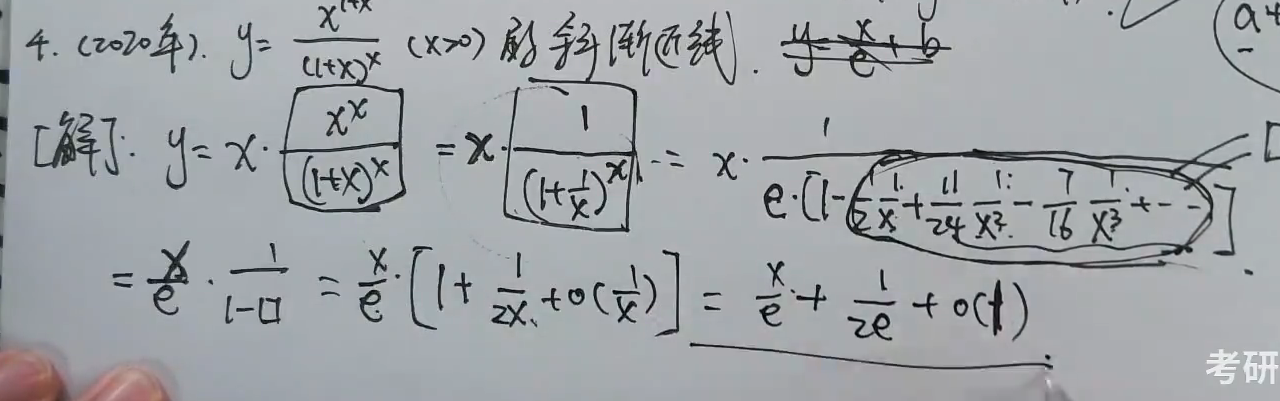 4. (2020年). y = x^(1+x)/(1+x)^x (x>0) 的斜渐近线. y = x/e + b
[解]: y = x · x^x/(1+x)^x = x · 1/(1+1/x)^x = x · 1/(e·[1 - 1/2 1/x + 11/24 1/x² - 7/16 1/x³ + - -])
= x/e · 1/(1-□) = x/e · [1 + 1/2x + o(1/x)] = x/e + 1/2e + o(1)
a
考研